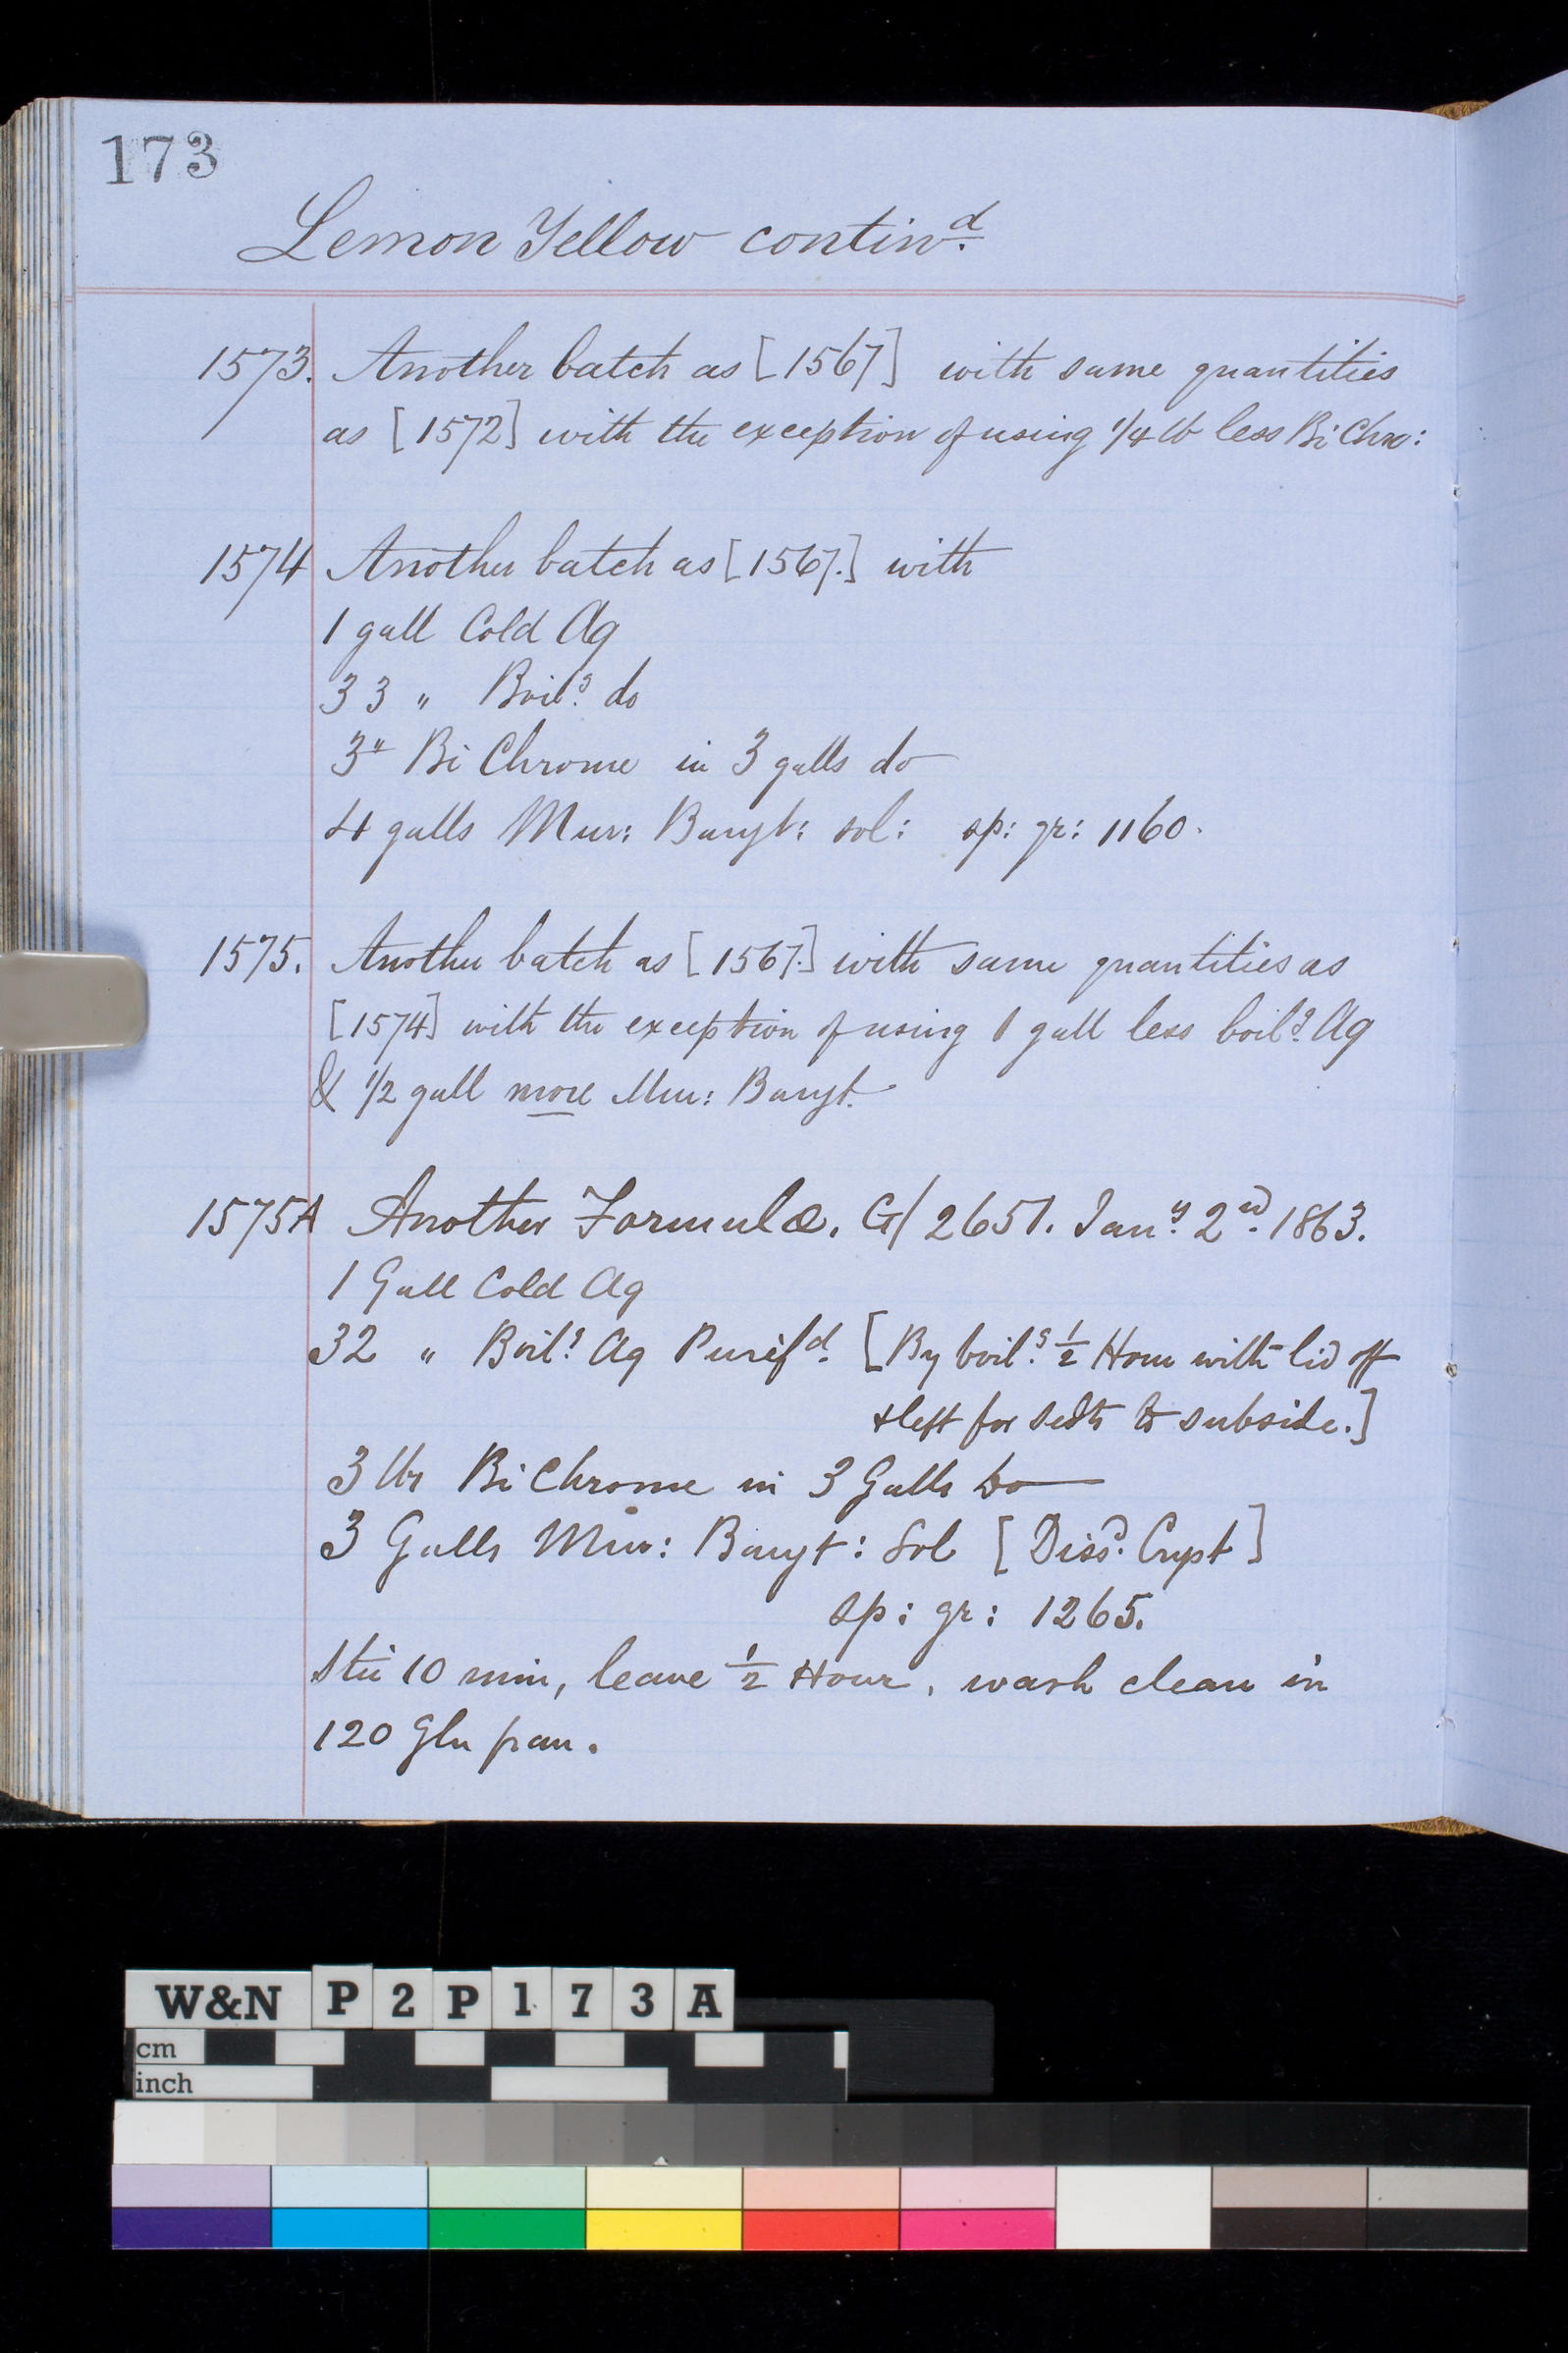 173
Lemon Yellow contin.d
1573. Another batch as [1567] with same quantities
as [1572] with the exception of using 1/4 lb less BiChro:
1574 Another batch as [1567.] with
1 gall Cold Aq
33 " Boil.g do
3 " Bi Chrome in 3 galls do
4 galls Mur: Baryt: sol: sp: gr: 1160.
1575. Another batch as [1567.] with same quantities as
[1574] with the exception of using 1 gall less boil.g Aq
& 1/2 gall more Mur: Baryt.
1575A Another Formula. G/2651. Jan.y 2.nd 1863.
1 Gall Cold Aq
32 " Boil.g Aq Purif.d [By boil.g 1/2 Hour with lid off
& left for sedts to subside.]
3 lbs BiChrome in 3 Galls Do
3 Galls Mur: Baryt: Sol [Diss.d Cryst]
sp: gr: 1265.
Stir 10 min, leave 1/2 Hour, wash clean in
120 Gln pan.
W&N P2P173A
cm
inch